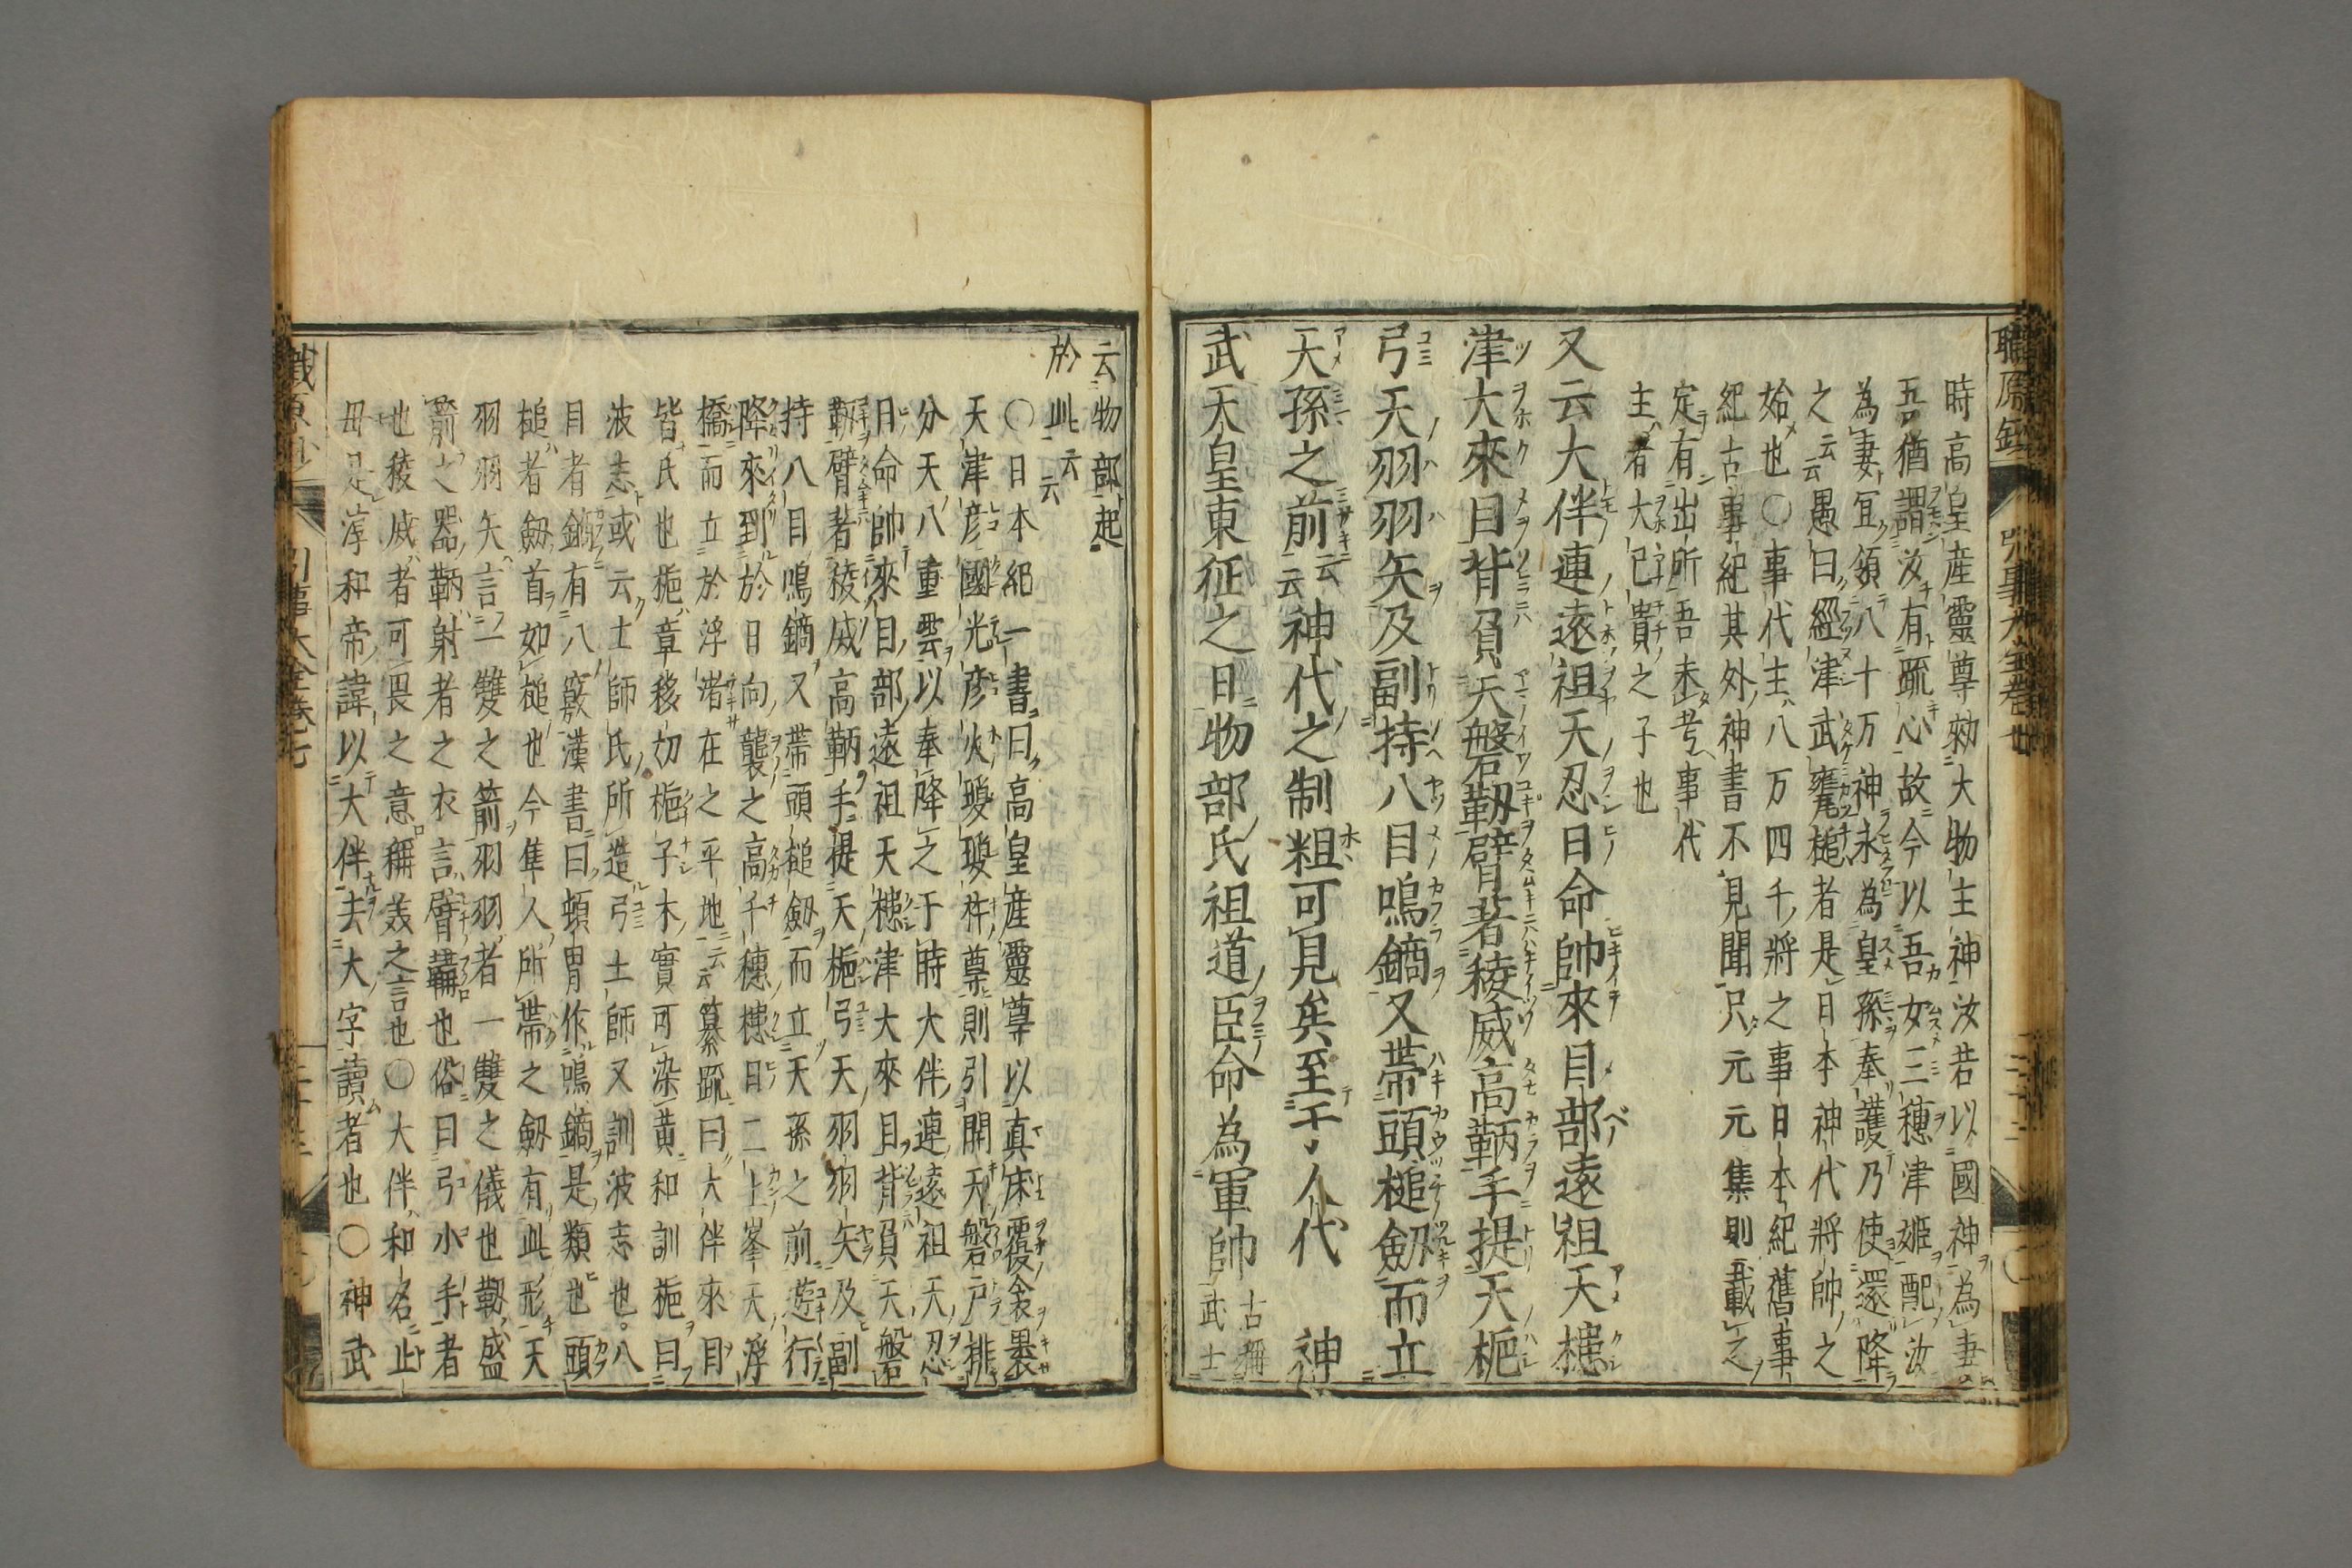 時高皇産靈尊勅大物主神汝若以國神為妻
吾猶謂汝有疏心故今以吾女三穗津姬配汝
為妻宜領八十万神永為皇孫奉護乃使還降
之云云愚曰經津武甕槌者是日本神代將帥之
始也〇事代主八万四千將之事日本紀舊事
紀古事紀其外神書不見聞只元元集則載之
定有出所吾未考事代
主者大已貴之子也
又云大伴連遠祖天忍日命帥來目部遠祖天槵
津大來目背負天磐靫臂著稜威高鞆手提天梔
弓天羽羽矢及副持八目鳴鏑又帶頭槌劔而立
天孫之前云云神代之制粗可見矣至于人代 神
武天皇東征之日物部氏祖道臣命為軍帥古稱武士
云物部起
於此云云
〇日本紀一書曰高皇産靈尊以真床覆衾褁
天津彦國光彦火瓊瓊杵尊則引開天磐戶排
分天八重雲以奉降之于時大伴連遠祖天忍
日命帥來目部遠祖天槵津大來目背負天磐
靫臂著稜威高鞆手提天梔弓天羽羽矢及副
持八目鳴鏑又帶頭槌劔而立天孫之前遊行
降來到於日向襲之高千穗槵日二上峯天浮
橋而立於浮渚在之平地云云纂疏曰大伴來目
皆氏也梔章移切梔子木實可染黃和訓梔曰
波志或云土師氏所造弓土師又訓波志也八
目者鏑有八竅漢書曰頓胃作鳴鏑是類也頭
槌者劔首如槌也今隼人所帶之劔有此形天
羽羽矢言一雙之箭羽羽者一雙之儀也靫盛
箭之器鞆射者之衣言臂韝也俗曰弓小手者
也稜威者可畏之意稱美之言也〇大伴和名止
毋是淳和帝諱以大伴去大字讀者也〇神武